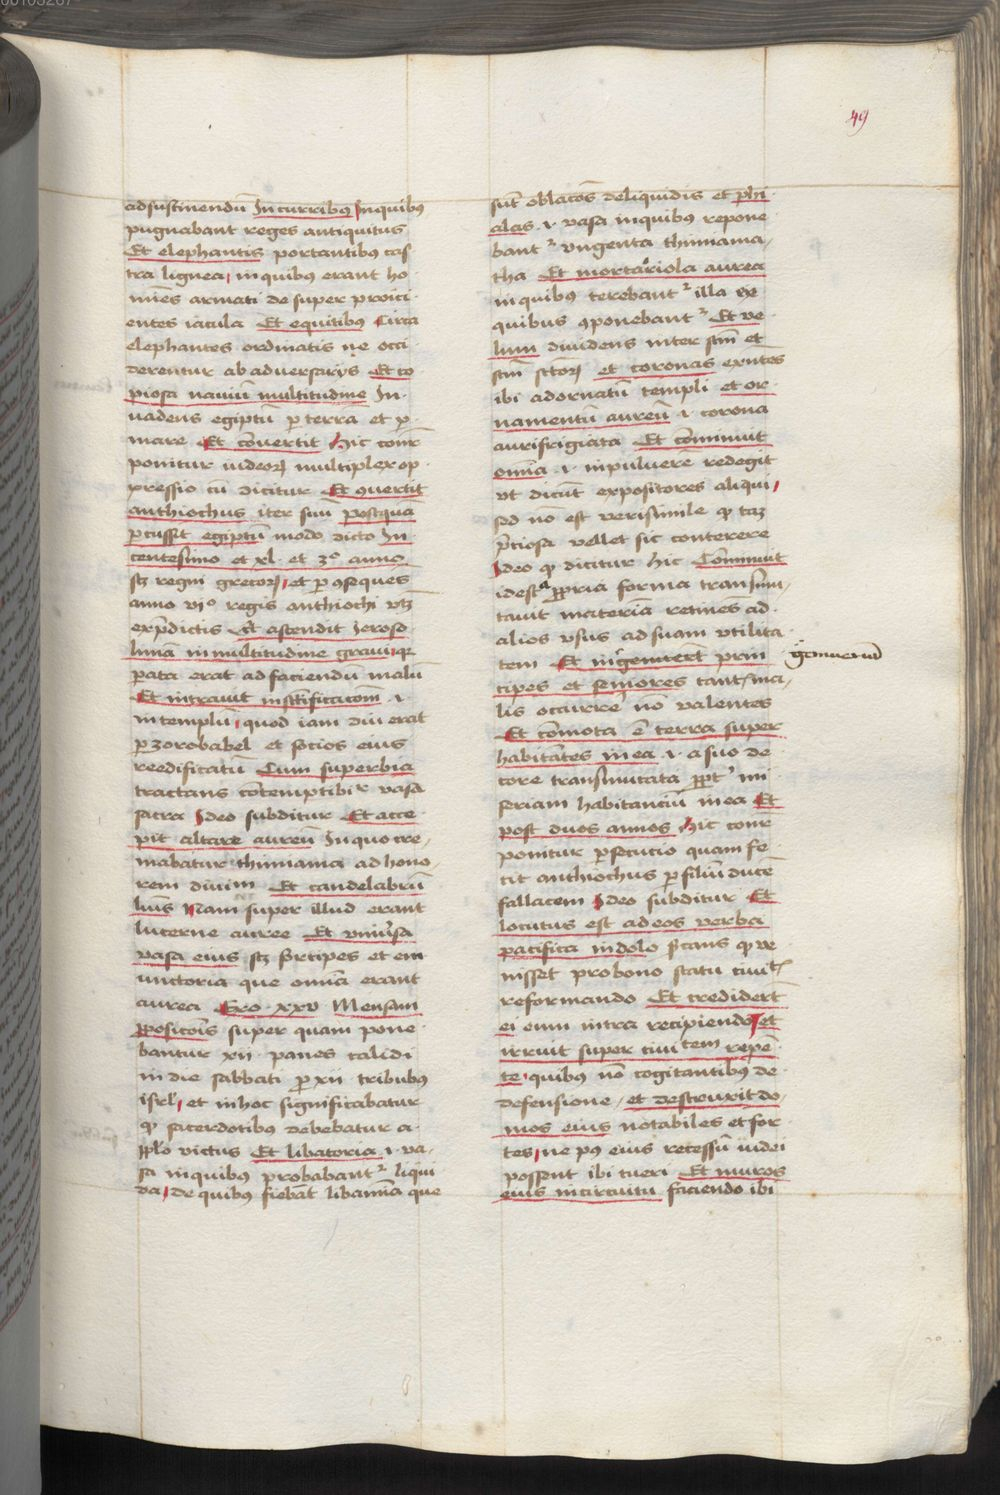 00103267
49
adsustinendū In curribꝰ Inquibꝰ
pugnabant reges antiquitus
Et elephantis portantibꝰ cas
tra lignea, in quibꝰ erant ho
mīes armati de super proici
entes iacula Et equitibꝰ Circa
elephantes ordinatis ne occi
derentur ab adversarijs Et co
piosa naviū multitudine In
vadens egiptū ꝑ terrā et ꝑ
mare Et cōvertit Hic conr̄
ponitur iudeoꝝ multiplex op
pressio cū dicitur Et ꝯvertit
anthiochus iter suū postquā
ꝑcussit egiptū modo dicto In
centesimo et xl et 3º anno
sꝫ regni grecoꝝ, et ꝑ ꝯseques
anno vjº regis anthiochi vtꝫ
exp̄dictis Et ascendit Jeroso
limā in multitudine gravi, q̄
ꝑata erat ad faciendū malū
Et intravit in sctificacōm .i.
in templū, quod iam diu erat
ꝑ zorobabel et socios eius
reedificatū Cum superbia
tractans cōtemptibiꝰ vasa
sacra Ideo subditur Et acce
pit altare aureū Inquo cre
mabatur thimiama ad hono
rem divim Et candelabrū
lūis Nam super illud erant
lucerne auree Et vniv̄sa
vasa eius sꝫ forcipes et em
unctoria que omīa erant
aurea Exo xxv Mensam
ꝓposicōis super quam pone
bantur xii panes calidi
in die sabbati ꝑ xii tribubꝰ
isrl̄, et in hoc significabatur
ꝙ sacerdotibus debebatur a
pplo victus Et libatoria .i. va
sa inquibꝰ probabant᷑ liqui
da, de quibꝰ fiebāt libamīa que
sūt oblacōs deliquidis et phi
alas .i. vasa inquibꝰ repone
bant᷑ vngenta thimiama
tha Et mortariola aurea
in quibꝰ terebant᷑ illa ex
quibus ꝯponebant᷑ Et ve
lum dividens inter scm̄ et
scm̄ sctoꝝ et coronas exn̄tes
ibi ad ornatū templi et or
namentū aureū .i. corona
aurifrigiata Et cōminuit
omīa .i. in pulverē redegit
vt dicūt expositores aliqui,
sed nō est verisimile ꝙ taꝫ
p̄ciosa vellet sic conterere
Ideo ꝙ dicitur hic Cōminuit
idest ꝓpria forma transmu
tavit materia retinēs ad
alios vsus ad suam vtilita
tem Et ingemuerūt prin
cipes et seniores tantꝭ ma
lis occurrē nō valentes
Et cōmota ē terra super
habitātes in ea .i. a suo de
core transmutata ꝓpt᷑ mi
seriam habitanciū in ea Et
post duos annos Hic conr̄
ponitur ꝑsecucio quam fe
cit anthiochus ꝑ filiū ducē
fallacem Ideo subditur Et
locutus est ad eos verba
pacifica in dolo fictans ꝙ ve
nisset pro bono statu civitꝭ
reformando Et credidert̄
ei eum intra recipiendo, et
irruit super civitem repē
te, quibus nō cogitantibꝰ de
defensione, et destruxit do
mos eius notabiles et for
tes, ne pꝰ eius recessū iudei
possent ibi tueri Et muros
eius in circuitu faciendo ibi